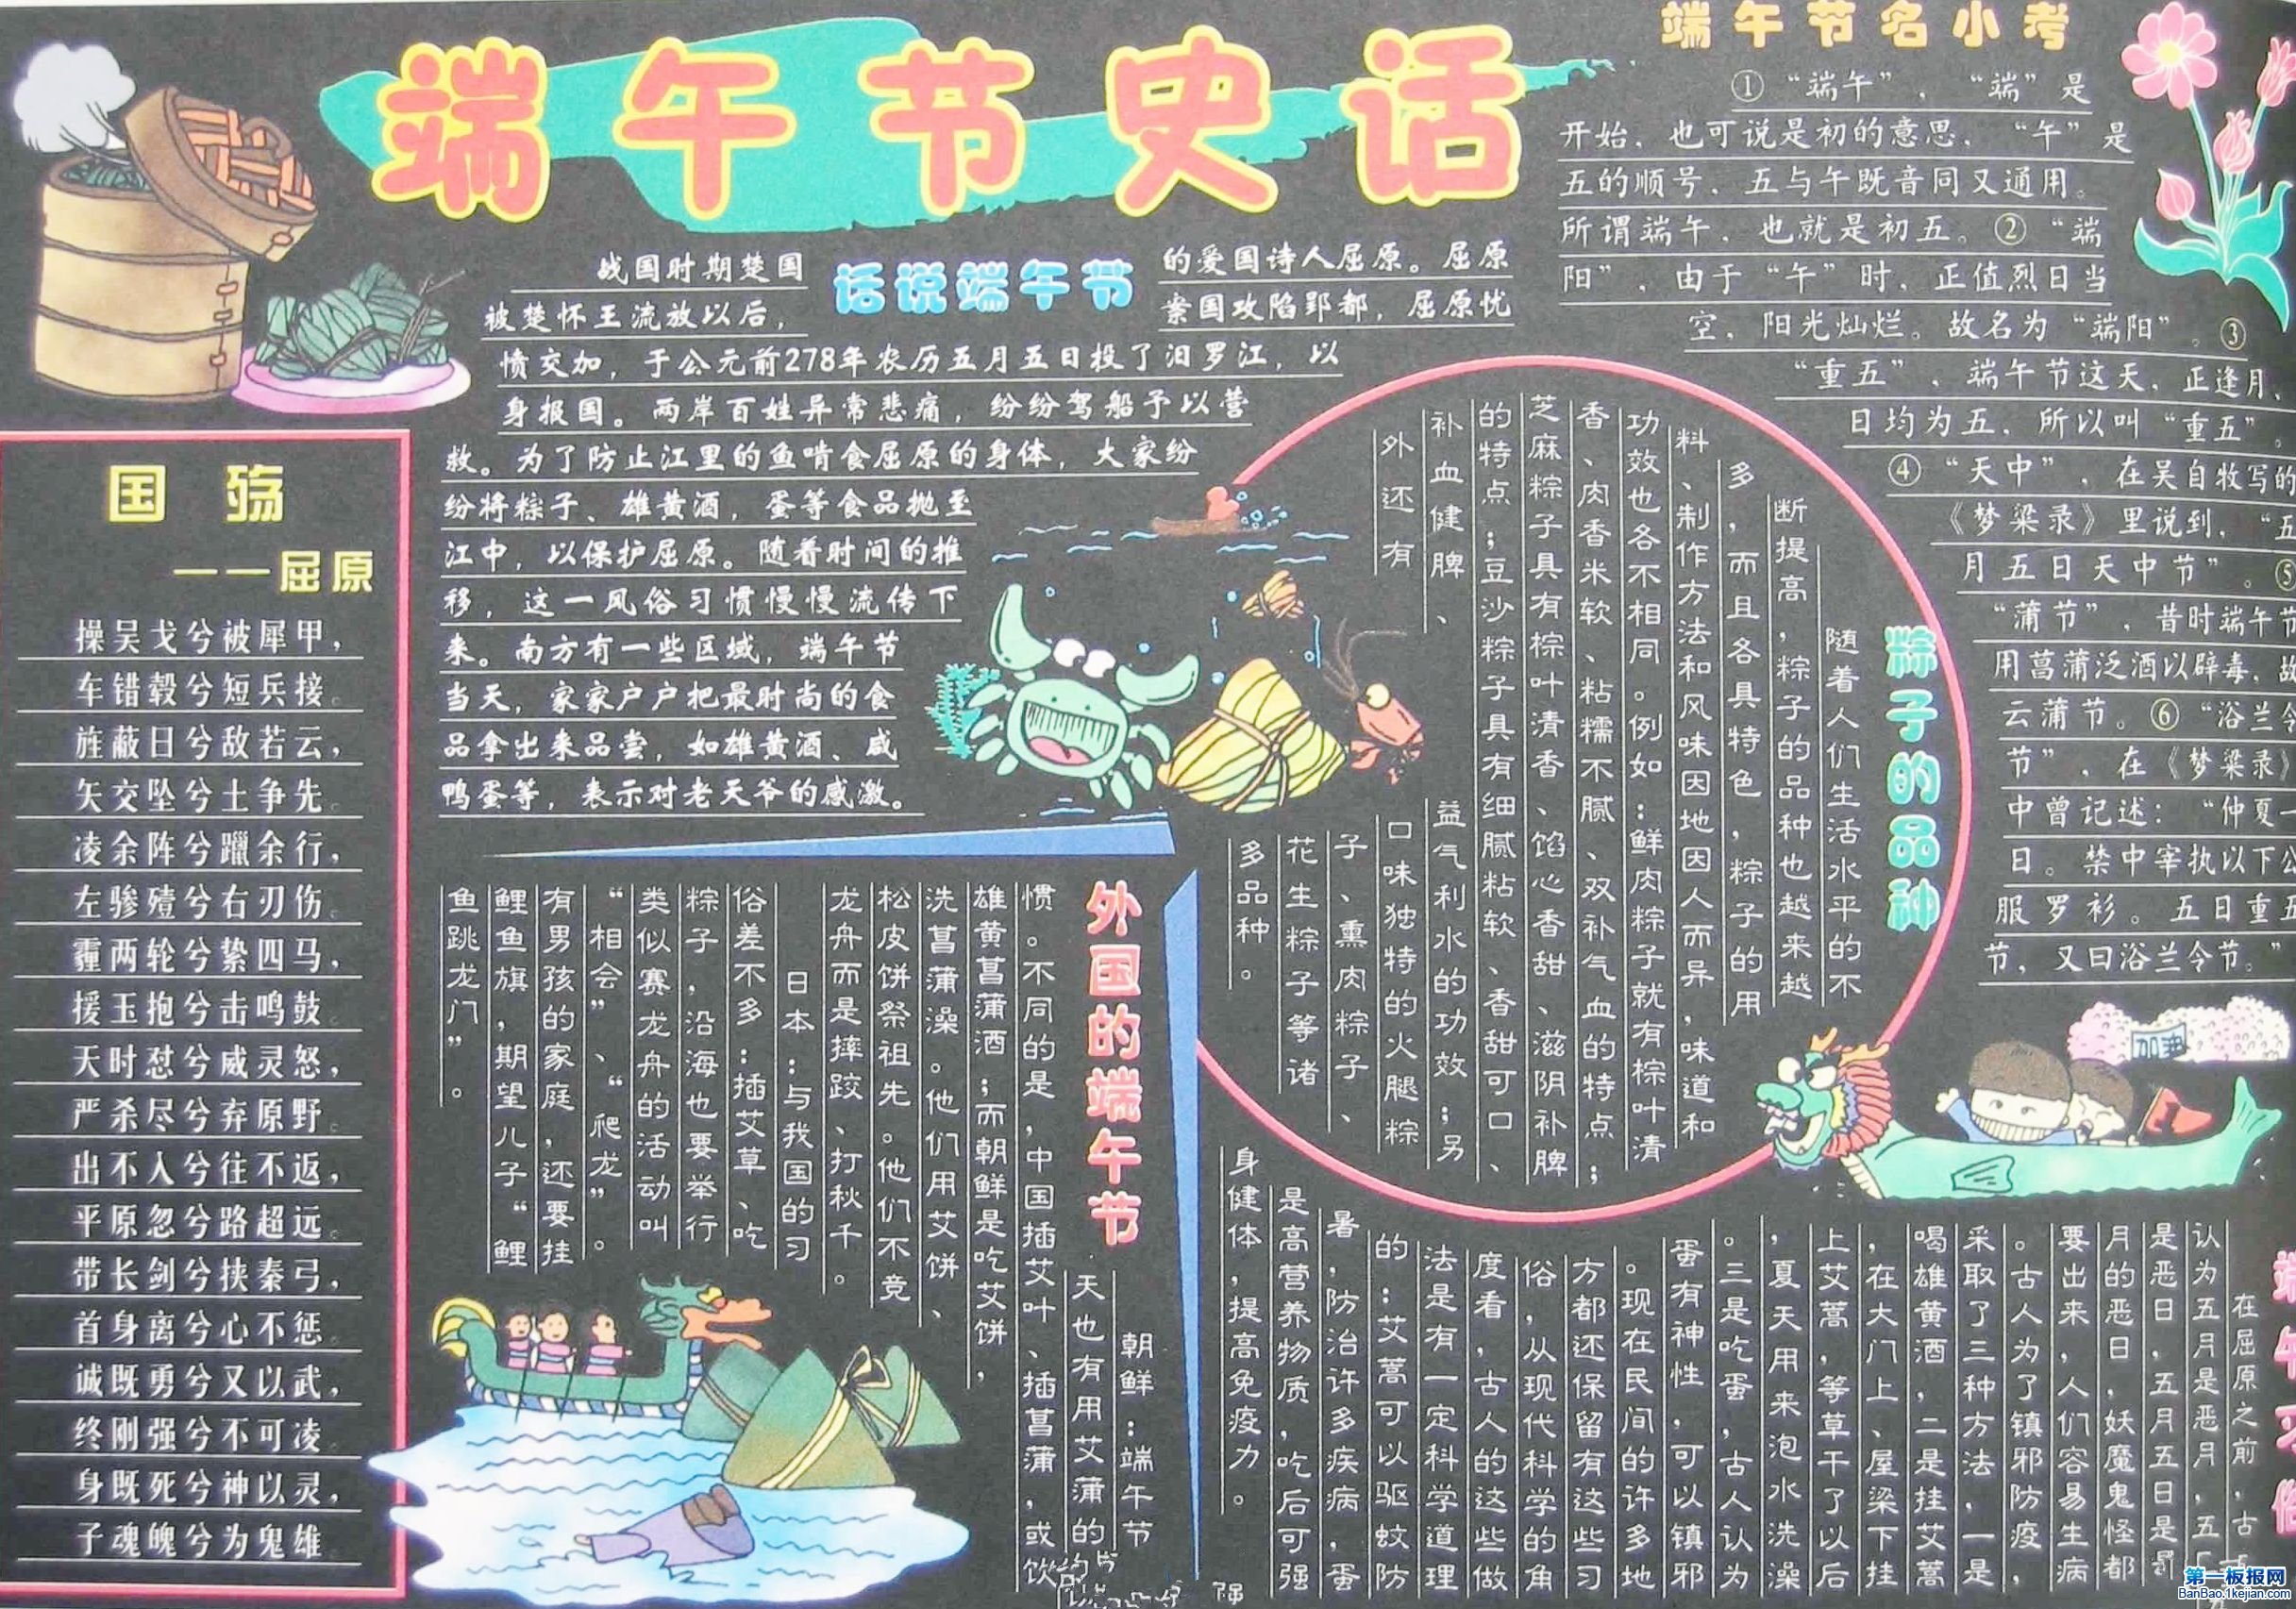 端午节史话
话说端午节
战国时期楚国
的爱国诗人屈原。屈原
被楚怀王流放以后，
案国攻陷郢都，屈原忧
愤交加，于公元前278年农历五月五日投了汨罗江，以
身报国。两岸百姓异常悲痛，纷纷驾船予以营
救。为了防止江里的鱼啃食屈原的身体，大家纷
纷将粽子、雄黄酒，蛋等食品抛至
江中，以保护屈原。随着时间的推
移，这一风俗习惯慢慢流传下
来。南方有一些区域，端午节
当天，家家户户把最时尚的食
品拿出来品尝，如雄黄酒、咸
鸭蛋等，表示对老天爷的感激。
端午节名小考
①“端午”，“端”是
开始，也可说是初的意思，“午”是
五的顺号，五与午既音同又通用。
所谓端午，也就是初五。②“端
阳”，由于“午”时，正值烈日当
空，阳光灿烂。故名为“端阳”。③
“重五”，端午节这天，正逢月、
日均为五，所以叫“重五”。
④“天中”，在吴自牧写的
《梦粱录》里说到，“五
月五日天中节”。⑤
“蒲节”，昔时端午节
用菖蒲泛酒以辟毒，故
云蒲节。⑥“浴兰令
节”，在《梦粱录》
中曾记述：“仲夏一
日。禁中宰执以下公
服罗衫。五日重五
节，又曰浴兰令节。”
国殇
——屈原
操吴戈兮被犀甲，
车错毂兮短兵接。
旌蔽日兮敌若云，
矢交坠兮士争先。
凌余阵兮躐余行，
左骖殪兮右刃伤。
霾两轮兮絷四马，
援玉抱兮击鸣鼓。
天时怼兮威灵怒，
严杀尽兮弃原野。
出不入兮往不返，
平原忽兮路超远。
带长剑兮挟秦弓，
首身离兮心不惩。
诚既勇兮又以武，
终刚强兮不可凌。
身既死兮神以灵，
子魂魄兮为鬼雄
粽子的品种
随着人们生活水平的不
断提高，粽子的品种也越来越
多，而且各具特色，粽子的用
料、制作方法和风味因地因人而异，味道和
功效也各不相同。例如：鲜肉粽子就有棕叶清
香、肉香米软、粘糯不腻、双补气血的特点；
芝麻粽子具有棕叶清香、馅心香甜、滋阴补脾
的特点；豆沙粽子具有细腻粘软、香甜可口、
补血健脾、
益气利水的功效；另
外还有
口味独特的火腿粽
子、熏肉粽子、
花生粽子等诸
多品种。
外国的端午节
朝鲜：端午节
天也有用艾蒲的
惯。不同的是，中国插艾叶、插菖蒲，或饮
雄黄菖蒲酒；而朝鲜是吃艾饼，
洗菖蒲澡。他们用艾饼、
松皮饼祭祖先。他们不竞
龙舟而是摔跤、打秋千。
日本：与我国的习
俗差不多：插艾草、吃
粽子，沿海也要举行
类似赛龙舟的活动叫
“相会”、“爬龙”。
有男孩的家庭，还要挂
鲤鱼旗，期望儿子“鲤
鱼跳龙门”。
加油
在屈原之前，古
认为五月是恶月，五
是恶日，五月五日是
月的恶日，妖魔鬼怪都
要出来，人们容易生病
。古人为了镇邪防疫，
采取了三种方法，一是
喝雄黄酒，二是挂艾蒿
，在大门上、屋梁下挂
上艾蒿，等草干了以后
，夏天用来泡水洗澡
。三是吃蛋，古人认为
蛋有神性，可以镇邪
。现在民间的许多地
方都还保留有这些习
俗，从现代科学的角
度看，古人的这些做
法是有一定科学道理
的：艾蒿可以驱蚊防
暑，防治许多疾病，蛋
是高营养物质，吃后可强
身健体，提高免疫力。
第一板报网
BanBao.1kejian.com